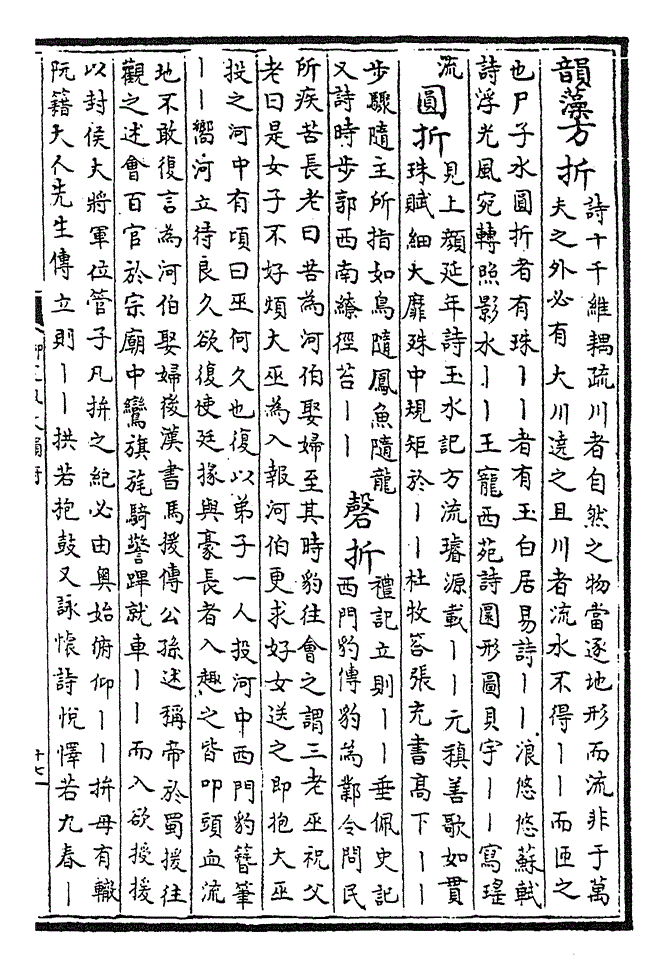 韻藻方折
詩十千維耦疏川者自然之物當逐地形而流非于萬
夫之外必有大川遶之且川者流水不得丨丨而匝之
也尸子水圓折者有珠丨丨者有玉白居易詩丨丨浪悠悠蘇軾
詩浮光風宛轉照影水丨丨王寵西苑詩園形圖貝宇丨丨寫瑤
流
圓折
見上顏延年詩玉水記方流璿源載丨丨元稹善歌如貫
珠賦細大靡珠中規矩於丨丨杜牧答張充書高下丨丨
步驟隨主所指如鳥隨鳳魚隨龍
又詩時步郭西南繚徑苔丨丨
磬折
禮記立則丨丨垂佩史記
西門豹傳豹為鄴令問民
所疾苦長老曰苦為河伯娶婦至其時豹往會之謂三老巫祝父
老曰是女子不好煩大巫為入報河伯更求好女送之即抱大巫
投之河中有頃曰巫何久也復以弟子一人投河中西門豹簪筆
丨丨嚮河立待良久欲復使廷掾與豪長者入趣之皆叩頭血流
地不敢復言為河伯娶婦後漢書馬援傳公孫述稱帝於蜀援往
觀之述會百官於宗廟中鸞旗旄騎警蹕就車丨丨而入欲授援
以封侯大將軍位管子凡拚之紀必由奧始俯仰丨丨拚毋有轍
阮籍大人先生傳立則丨丨拱若抱鼓又詠懷詩悅懌若九春丨